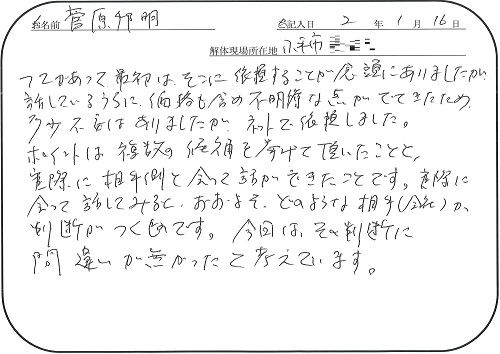 お名前 菅原邦明 ご記入日 2年1月16日
解体現場所在地 小平市
つてがあって最初は、そこに依頼することが念頭にありましたが、
話しているうちに、価格も含め不明瞭な点がでてきたため
多少不安はありましたが、ネットで依頼しました。
ポイントは複数の候補を挙げて頂いたことと、
実際に相手側と会って話ができたことです。実際に
会って話してみると、おおよそ、どのような相手(会社)か、
判断がつく為です。今回は、その判断に
間違いが無かったと考えています。